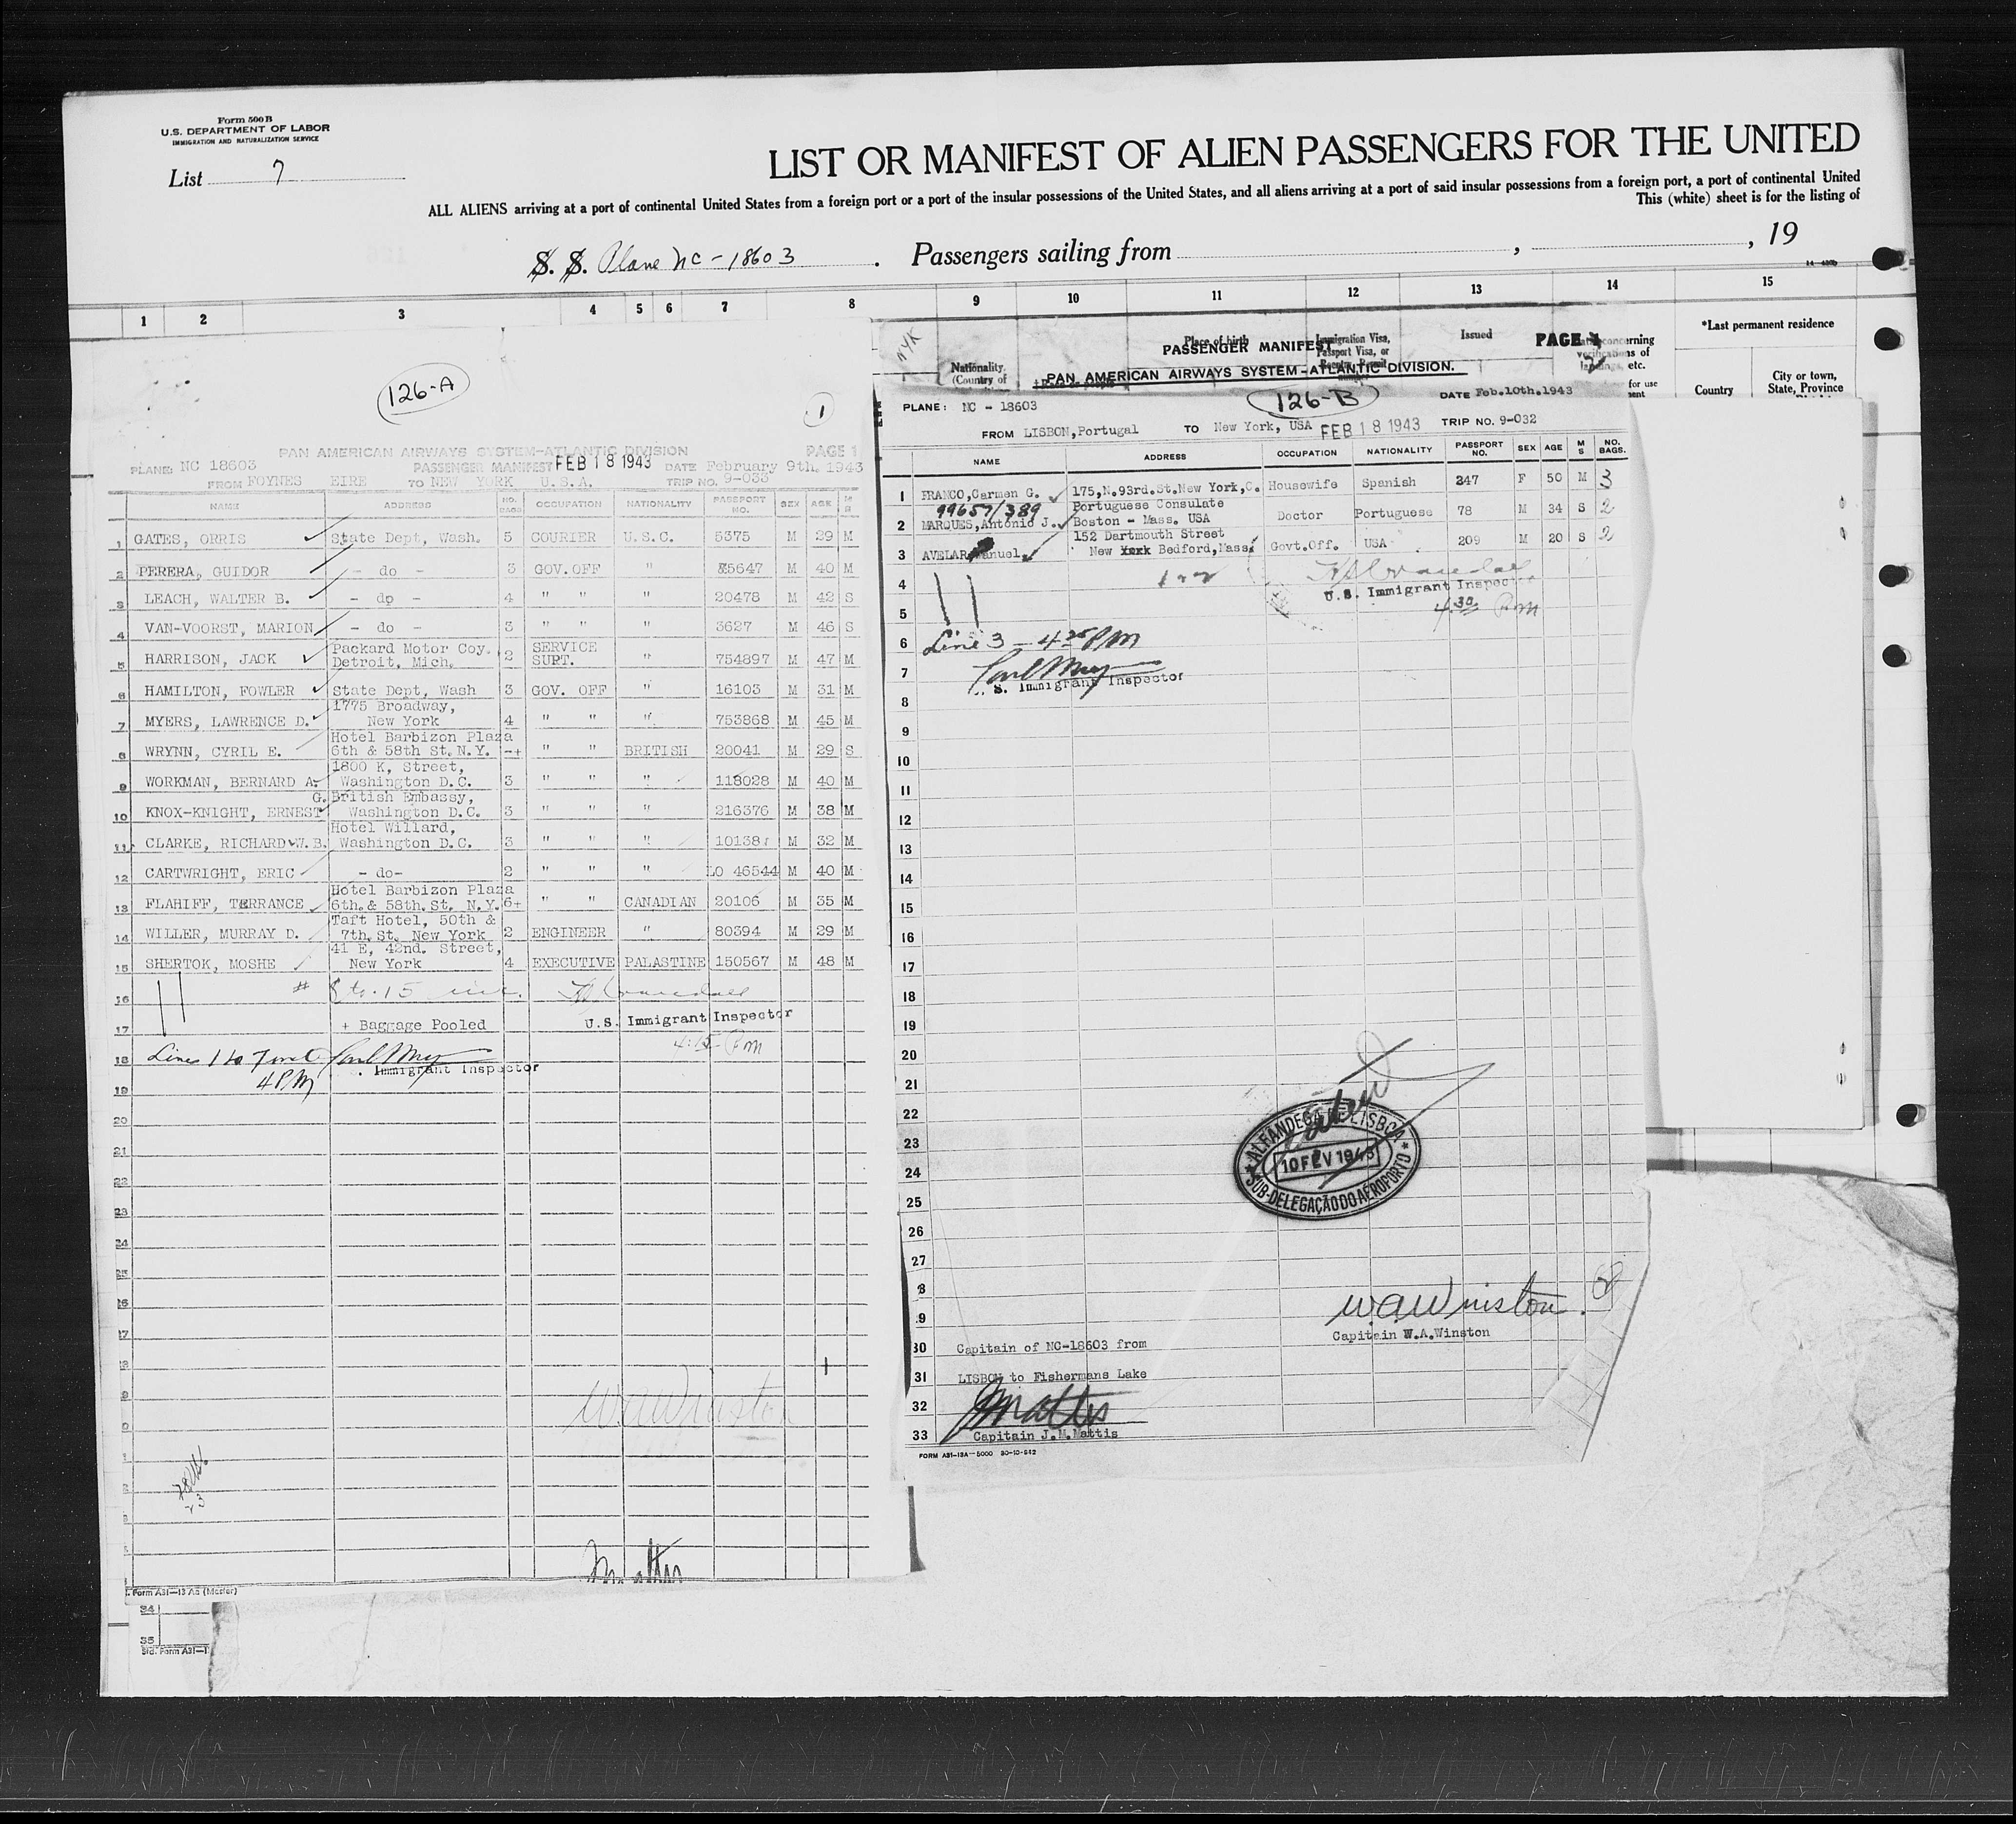 Form 500 B
U.S. DEPARTMENT OF LABOR
IMMIGRATION AND NATURALIZATION SERVICE
List 7
LIST OR MANIFEST OF ALIEN PASSENGERS FOR THE UNITED
ALL ALIENS arriving at a port of continental United States from a foreign port or a port of the insular possessions of the United States, and all aliens arriving at a port of said insular possessions from a foreign port, a port of continental United
This (white) sheet is for the listing of
S. S. Plane NC-18603 . Passengers sailing from , , 19
1 2 3 4 5 6 7 8 9 10 11 12 13 14 15
126-A
1
PAN AMERICAN AIRWAYS SYSTEM-ATLANTIC DIVISION PAGE 1
PLANE: NC 18603 PASSENGER MANIFEST FEB 18 1943 DATE February 9th, 1943
FROM FOYNES EIRE TO NEW YORK U.S.A. TRIP NO. 9-033
NAME ADDRESS NO. BAGS OCCUPATION NATIONALITY PASSPORT NO. SEX AGE M S
1 GATES, ORRIS State Dept, Wash. 5 COURIER U.S.C. 5375 M 29 M
2 PERERA, GUIDOR - do - 3 GOV.OFF " 35647 M 40 M
3 LEACH, WALTER B. - do - 4 " " " 20478 M 42 S
4 VAN-VOORST, MARION - do - 3 " " " 3627 M 46 S
5 HARRISON, JACK Packard Motor Coy. Detroit, Mich. 2 SERVICE SUPT. " 754897 M 47 M
6 HAMILTON, FOWLER State Dept, Wash 3 GOV. OFF " 16103 M 31 M
7 MYERS, LAWRENCE D. 1775 Broadway, New York 4 " " " 753868 M 45 M
8 WRYNN, CYRIL E. Hotel Barbizon Plaza 6th & 58th St. N.Y. -+ " " BRITISH 20041 M 29 S
9 WORKMAN, BERNARD A. 1800 K, Street, Washington D.C. 3 " " " 118028 M 40 M
10 KNOX-KNIGHT, ERNEST G. British Embassy, Washington D.C. 3 " " " 216376 M 38 M
11 CLARKE, RICHARD W.B. Hotel Willard, Washington D.C. 3 " " " 101381 M 32 M
12 CARTWRIGHT, ERIC - do- 2 " " " LO 46544 M 40 M
13 FLAHIFF, TERRANCE Hotel Barbizon Plaza 6th. & 58th. St. N.Y. 6+ " " CANADIAN 20106 M 35 M
14 WILLER, MURRAY D. Taft Hotel, 50th & 7th. St. New York 2 ENGINEER " 80394 M 29 M
15 SHERTOK, MOSHE 41 E, 42nd. Street, New York 4 EXECUTIVE PALASTINE 150567 M 48 M
16 # 8 to 15 inc.
17 + Baggage Pooled U.S. Immigrant Inspector
4:15 PM
18 Lines 1 to 7 incl Carl
Immigrant Inspector
19 4 PM
20
21
22
23
24
25
26
27
W.A. Winston
Mattis
Form A31-13 As (Master)
34
35
Std. Form A31-1
Nationality. (Country of
Place of birth
Immigration Visa, Passport Visa, or
Issued
concerning verifications of landings, etc.
*Last permanent residence
Country
City or town, State, Province
for use
PASSENGER MANIFEST PAGE 2
PAN AMERICAN AIRWAYS SYSTEM-ATLANTIC DIVISION.
PLANE: NC - 18603 126-B DATE Feb.10th.1943
FROM LISBON, Portugal TO New York, USA FEB 18 1943 TRIP NO. 9-032
NAME ADDRESS OCCUPATION NATIONALITY PASSPORT NO. SEX AGE M S NO. BAGS.
1 FRANCO, Carmen G. 175,N.93rd.St.New York,C. Housewife Spanish 247 F 50 M 3
99657/389
2 MARQUES, Antonio J. Portuguese Consulate Boston - Mass. USA Doctor Portuguese 78 M 34 S 2
3 AVELAR, Manuel 152 Dartmouth Street New York Bedford, Mass. Govt.Off. USA 209 M 20 S 2
4
U.S. Immigrant Inspector
5 4 30 PM
6 Line 3 - 4 25 PM
7 Carl
U. S. Immigrant Inspector
8
9
10
11
12
13
14
15
16
17
18
19
20
21
22
23
24
25
ALFANDEGA DE LISBOA
10 FEV 1943
SUB-DELEGAÇÃO DO AEROPORTO
26
27
8
9
W.A. Winston.
Capitain W.A.Winston
30 Capitain of NC-18603 from
31 LISBON to Fishermans Lake
32 J Mattis
33 Capitain J.M.Mattis
FORM A31-13A-5000 30-10-942